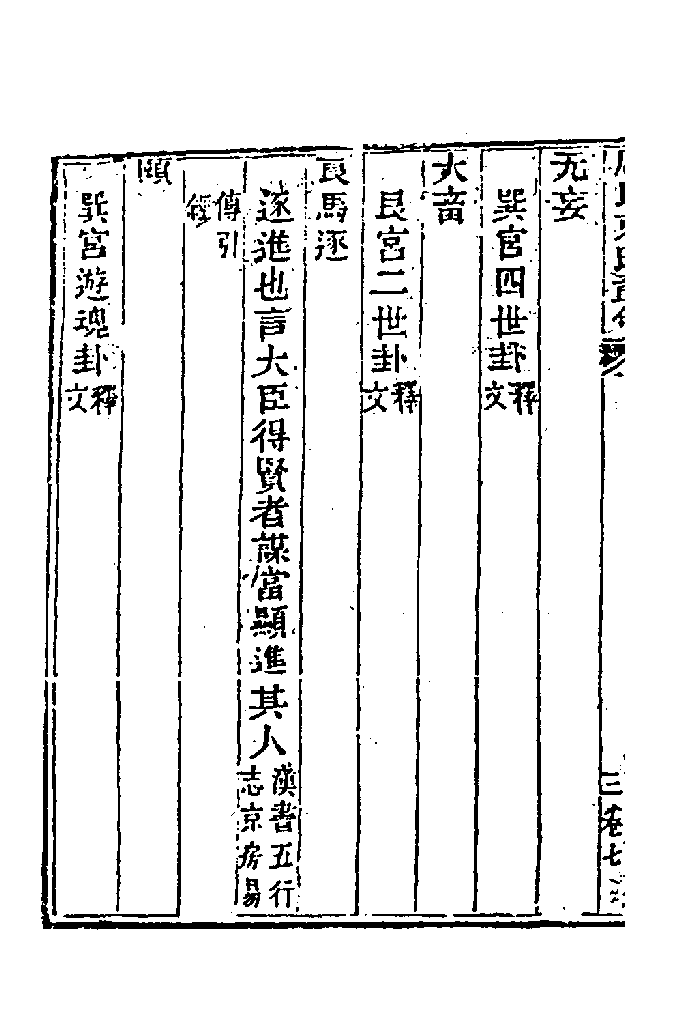 无妄
巽宮四世卦釋文
大畜
艮宮二世卦釋文
良馬逐
逐進也言大臣得賢者謀當顯進其人漢書五行志京房易
傳引經
頤
巽宮遊魂卦釋文
三